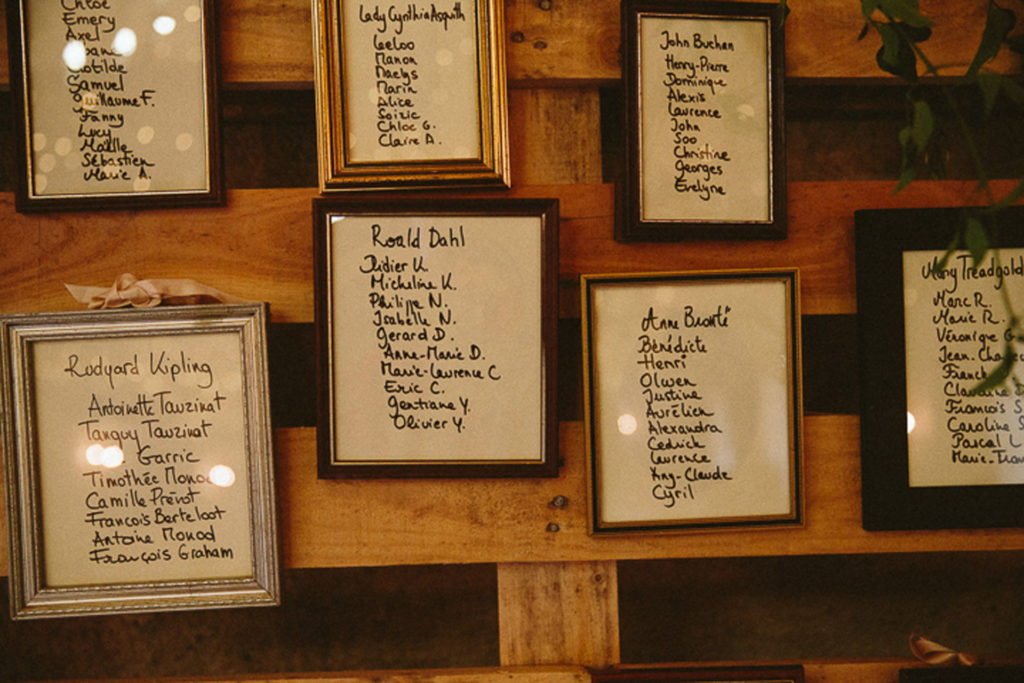 Chloé
Emery
Axel
Clotilde
Samuel
Guillaume F.
Fanny
Lucy
Maëlle
Sébastien
Marie A.
Lady Cynthia Asquith
Leeloo
Manon
Maelys
Marin
Alice
Soizic
Chloe G.
Claire A.
John Buchan
Henry-Pierre
Dominique
Alexis
Laurence
John
Soo
Christine
Georges
Evelyne
Rudyard Kipling
Antoinette Tauzinat
Tanguy Tauzinat
Garric
Timothée Monod
Camille Prévot
François Berteloot
Antoine Monod
François Graham
Roald Dahl
Didier K.
Micheline K.
Philippe N.
Isabelle N.
Gerard D.
Anne-Marie D.
Marie-Laurence C
Eric C.
Gentiane Y.
Olivier Y.
Anne Brontë
Bénédicte
Henri
Olwen
Justine
Aurélien
Alexandra
Cedrick
Laurence
Any-Claude
Cyril
Mary Treadgold
Marc R.
Marie R.
Véronique G
Jean-
Franck
Claudine
Francois S
Caroline S
Pascal L
Marie-